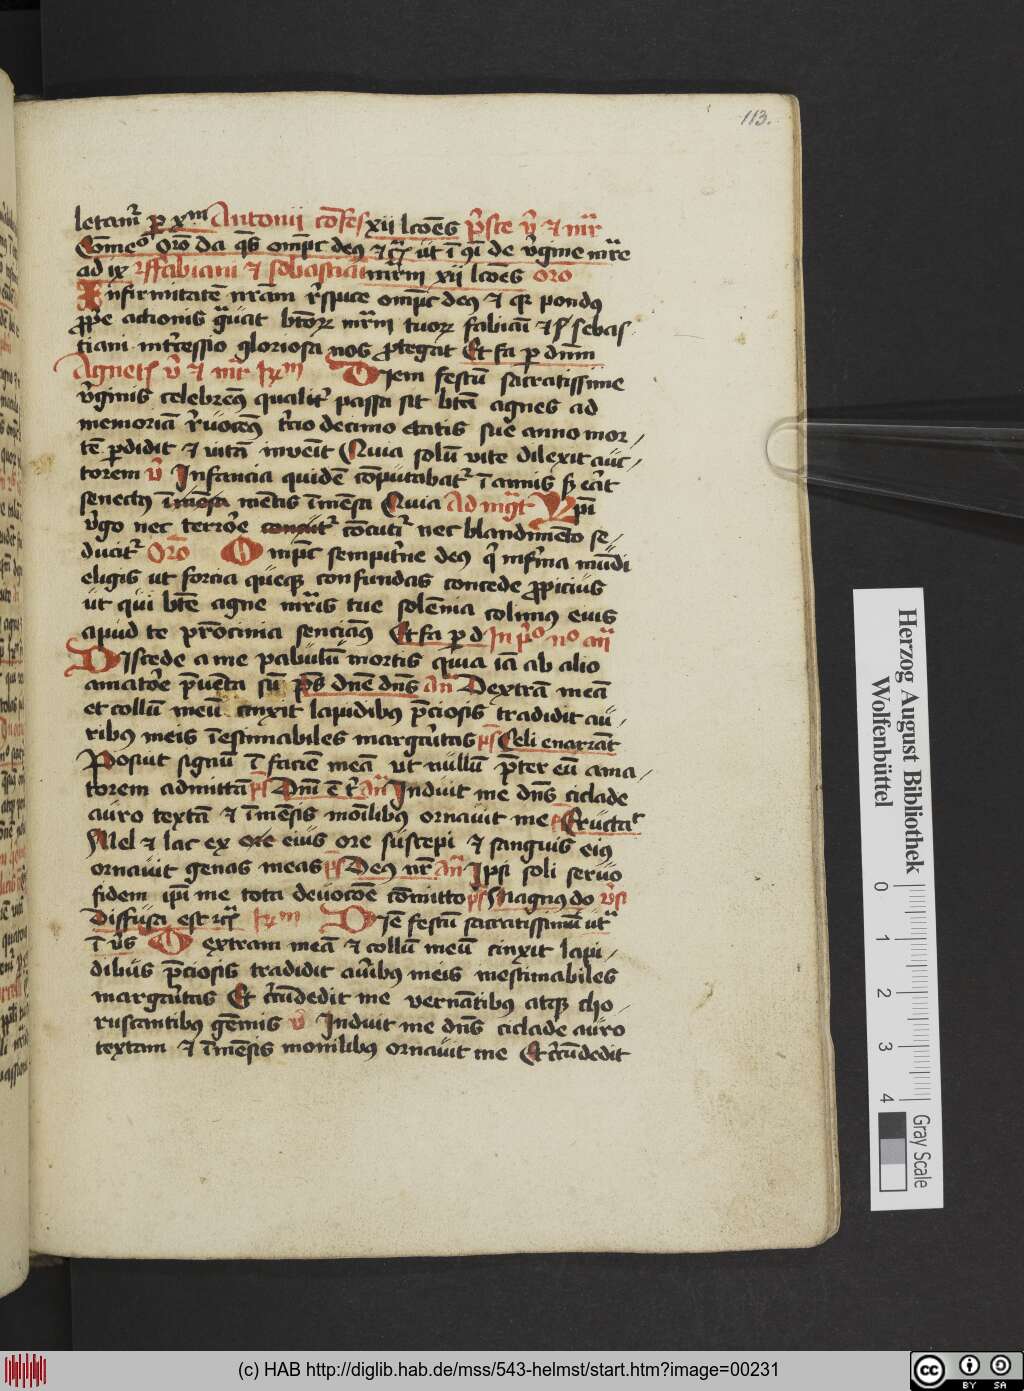 113.
letam᷑ ꝑ xᵐ Antonii cōfes xii lcōes p̄sce v̄ ⁊ mr̄
Cōmeᵒ Oro da qs̄ omp̄c deꝰ ⁊ c̄ ut ī de v̄gine mr̄e
ad ix Fabiani ⁊ sebastiani mr̄m xii lcōes oro
Infirmitatē nr̄am r̄spice omp̄c deꝰ ⁊ qꝛ pondꝰ
ꝓpe actionis gͣuat btōꝝ mr̄m tuoꝝ fabiāi ⁊ sebas
tiani int̄cessio gloriosa nos ꝓtegat Et fa ꝑ dnm̄
Agnetꝭ v̄ ⁊ mr̄ Iꝝᵐ Diem festū sacratissime
v̄ginis celebremꝰ qualit᷑ passa sit btā agnes ad
memoriā r̄uocemꝰ t̄cio decimo etatis sue anno mor/
tē ꝑdidit ⁊ vitā invēit Quia solū vite dilexit auc/
torem v̄ Infancia quidē cōputabat᷑ ī annis sꝫ erat
senectꝰ īmēsa mentis īmēsa Quia Ad mgt̄ Xpī
v̄go nec terrōe cōcuti᷑ nec blandimēto se/
ducit᷑ Oro Omp̄c sempit̄ne deꝰ q̄ infirma mūdi
eligis ut forcia queqꝫ confundas concede ꝓpicius
ut qui btē agne mr̄is tue solēnia colimꝰ eius
apud te pr̄ocinia senciamꝰ Et fa ꝑ d In pᵒ nᵒ an̄
Discede a me pabulū mortis quia iā ab alio
amatōe p̄uenta sū ps̄ dnē dns̄ an̄ Dextrā meā
et collū meū cinxit lapidibꝰ p̄ciosis tradidit au/
ribꝰ meis īestimabiles margaritas ps̄ Celi enarrāt
Posuit signū ī faciē meā ut nullū p̄ter eū ama/
torem admittā ps̄ Dnī ē t̄ an̄ Induit me dns̄ ciclade
auro textā ⁊ īmēsis mōilibꝰ ornauit me Eructaᵗ
Mel ⁊ lac ex ore eius ore suscepi ⁊ sanguis eiꝰ
ornauit genas meas ps̄ Deꝰ nr̄ an̄ Ipsi soli seruo
fidem ipī me tota deuocōe cōmitto ps̄ Magnꝰ do v̄s
Diffusa est Iꝝᵐ Diē festū sacratissimū ut᷑
ī v̄s Dextram meā ⁊ collū meū cinxit lapi/
dibus p̄ciosis tradidit auribꝰ meis inestimabiles
margaritas Et circūdedit me vernātibꝰ atqꝫ cho/
ruscantibꝰ gēmis v̄ Induit me dns̄ ciclade auro
textam ⁊ īmēsis monilibꝰ ornauit me Et circūdedit
Herzog August Bibliothek
Wolfenbüttel
0 1 2 3 4
Gray Scale
(c) HAB http://diglib.hab.de/mss/543-helmst/start.htm?image=00231
cc BY SA